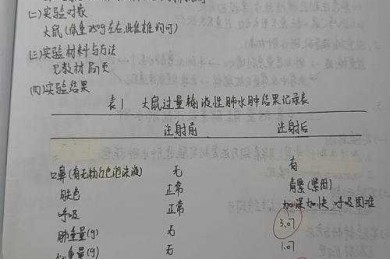 (二)实验对象
大鼠(体重250g左右,雌雄均可)
(三)实验材料与方法
见教材
(四)实验结果
表1 大鼠过量输液性肺水肿结果记录表
注射前 注射后
口鼻(有无粉红色泡沫液) 无 有
肤色 正常 青紫(紫绀)
呼吸 正常 加深加快 呼吸困难
肺重量(g) 无 3.07
无 1.07